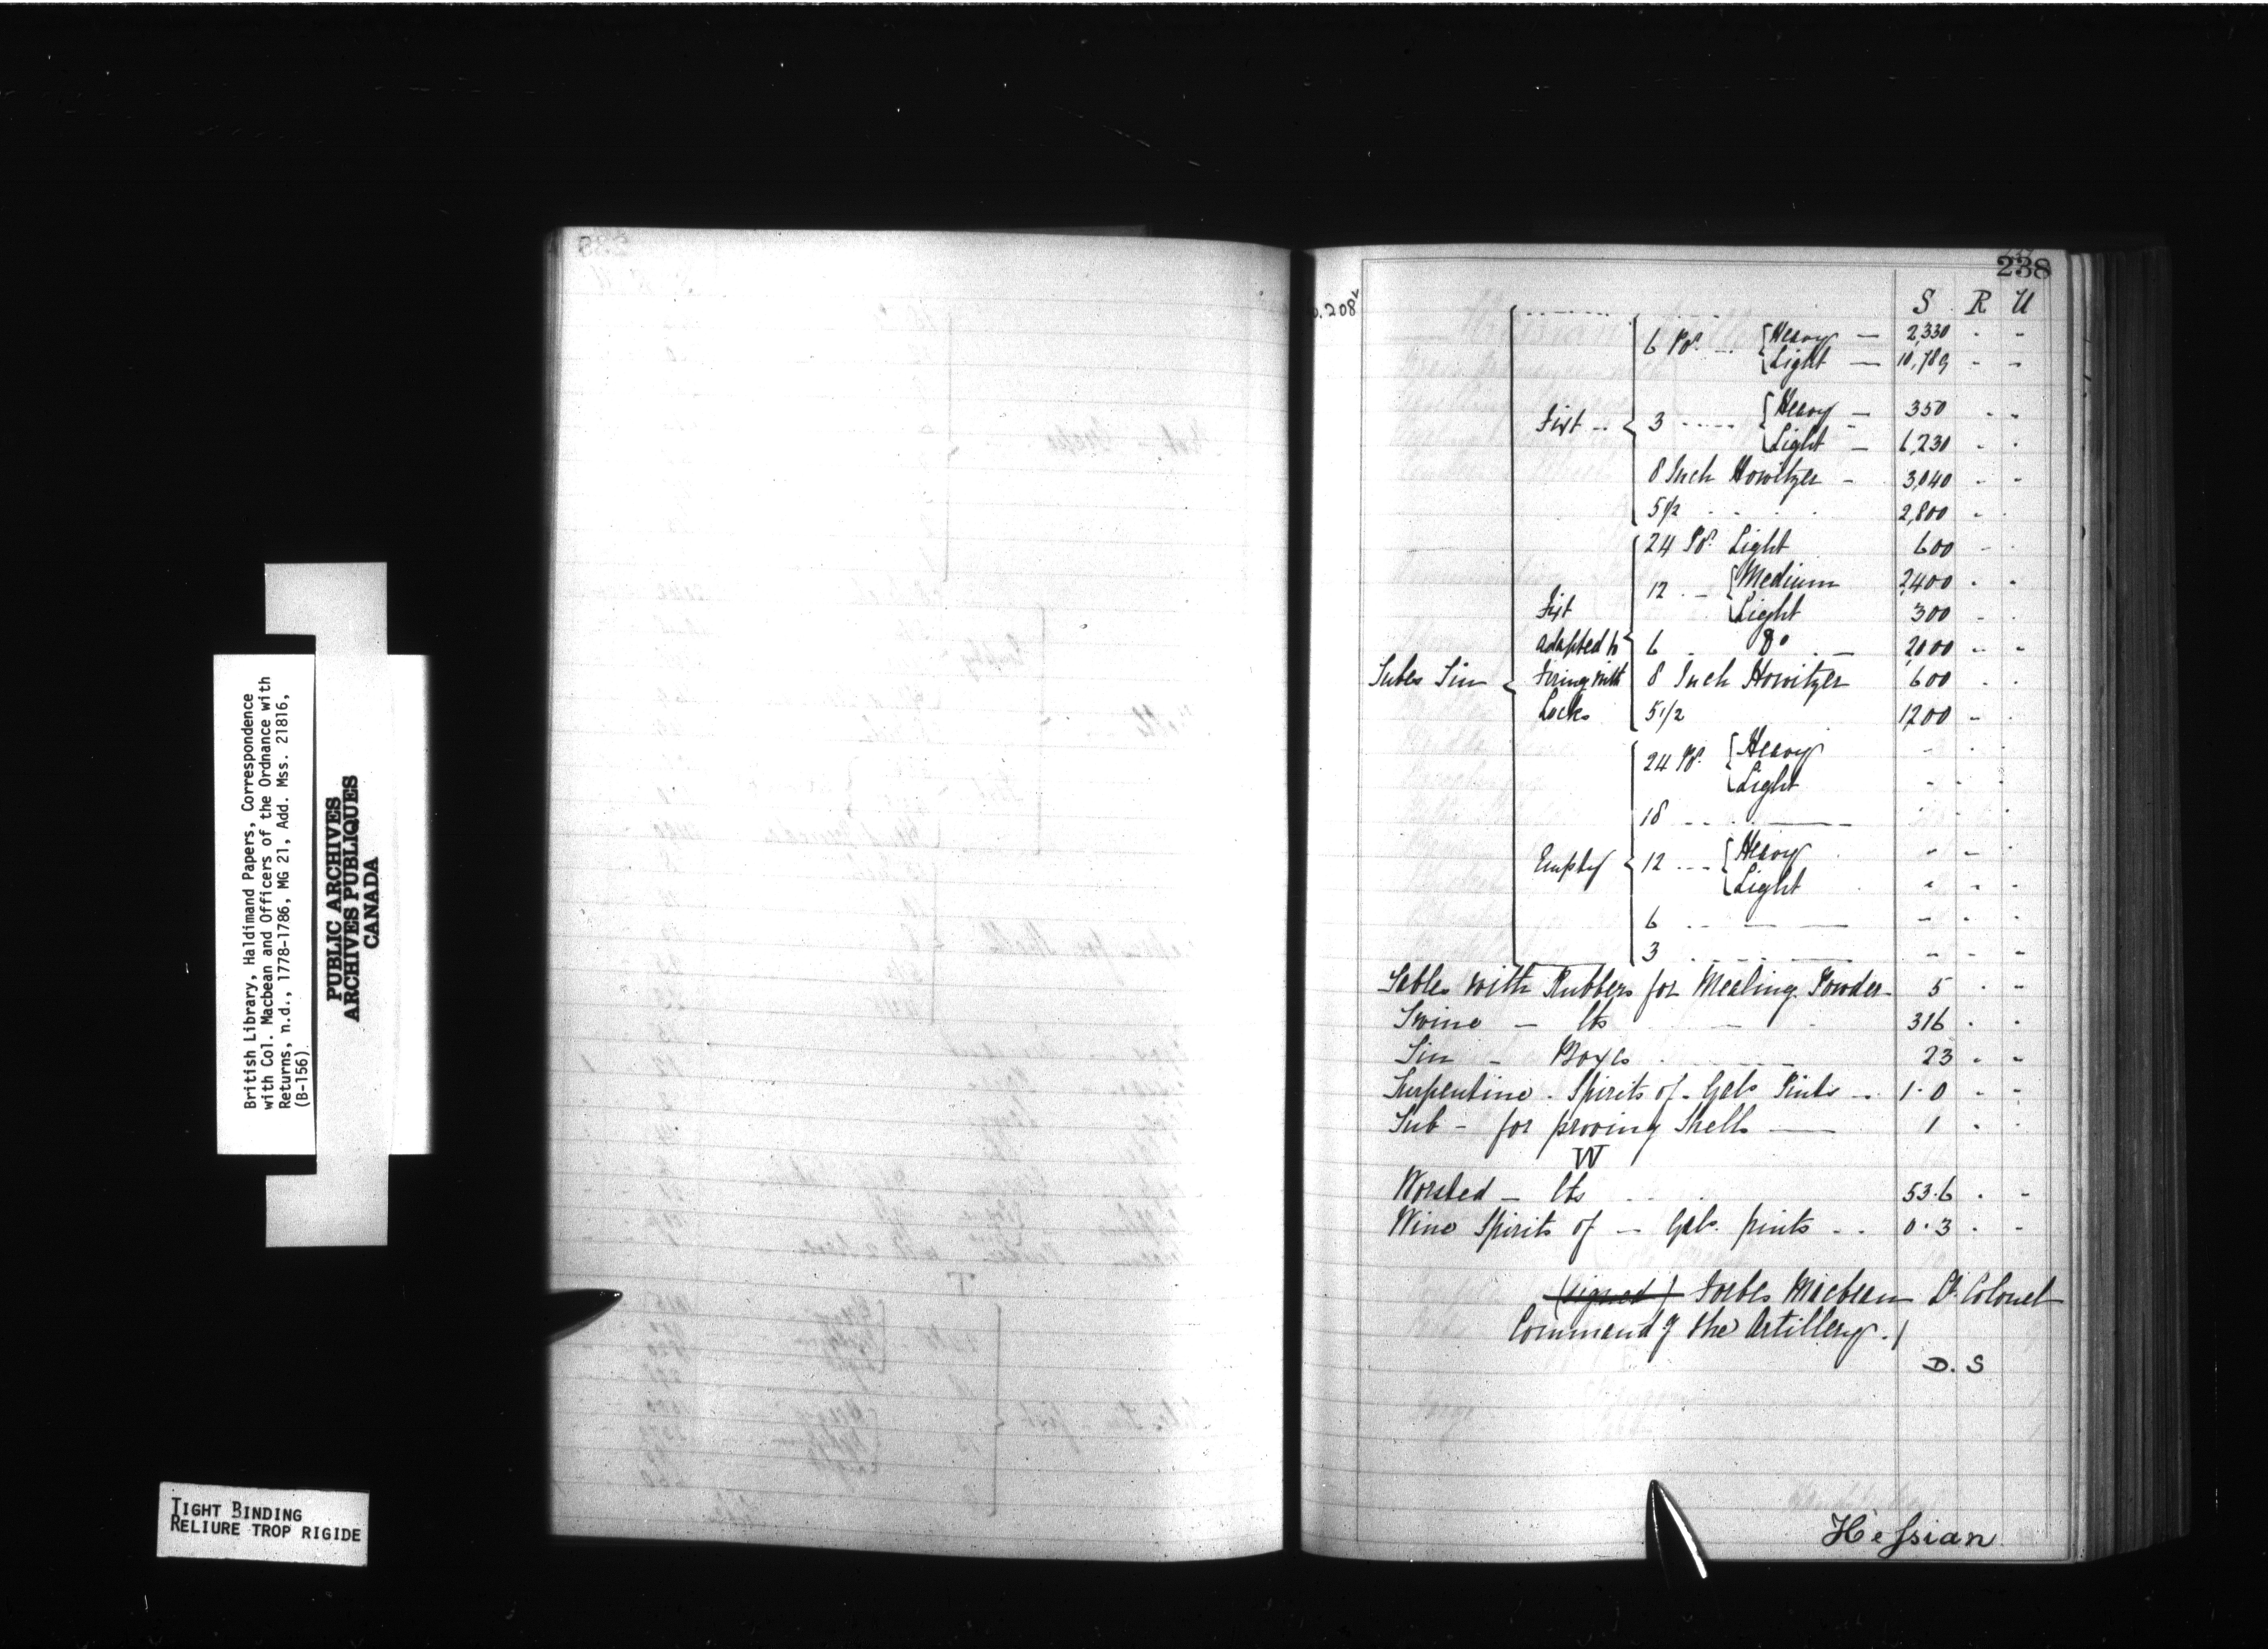 British Library, Haldimand Papers, Correspondence
with Col. Macbean and Officers of the Ordnance with
Returns, n.d., 1778-1786, MG 21, Add. Mss. 21816,
(B-156)
PUBLIC ARCHIVES
ARCHIVES PUBLIQUES
CANADA
TIGHT BINDING
RELIURE TROP RIGIDE
238
208
S R U
6 Pr. Heavy — 2,330 - -
Light — 10,789 - -
Fixt 3 Heavy — 350 - -
Light — 6,230 - -
8 Inch Howitzer - 3,040 - -
5 1/2 2,800 - -
24 Pr. Light 600 - -
12 Medium 2,400 - -
Fixt Light 300 - -
adapted to 6 Do 2,000 - -
Tubes Tin Firing with 8 Inch Howitzer 600 - -
Locks 5 1/2 1200 - -
24 Pr. Heavy - - -
Light - - -
18 - - -
Empty 12 Heavy - - -
Light - - -
6 - - -
3 - - -
Tables with Rubbers for Mealing Powder - 5 - -
Twine — lbs 316 - -
Tin - Boxes 23 - -
Turpentine - Spirits of - Gals Pints 1.0 - -
Tub - for proving Shells — 1 - -
W
Worsted - lbs 53.6 - -
Wine Spirits of - Gals. pints 0.3 - -
(signed) Forbes Macbean Lt. Colonel
Command'g the Artillery.
D. S
Hessian